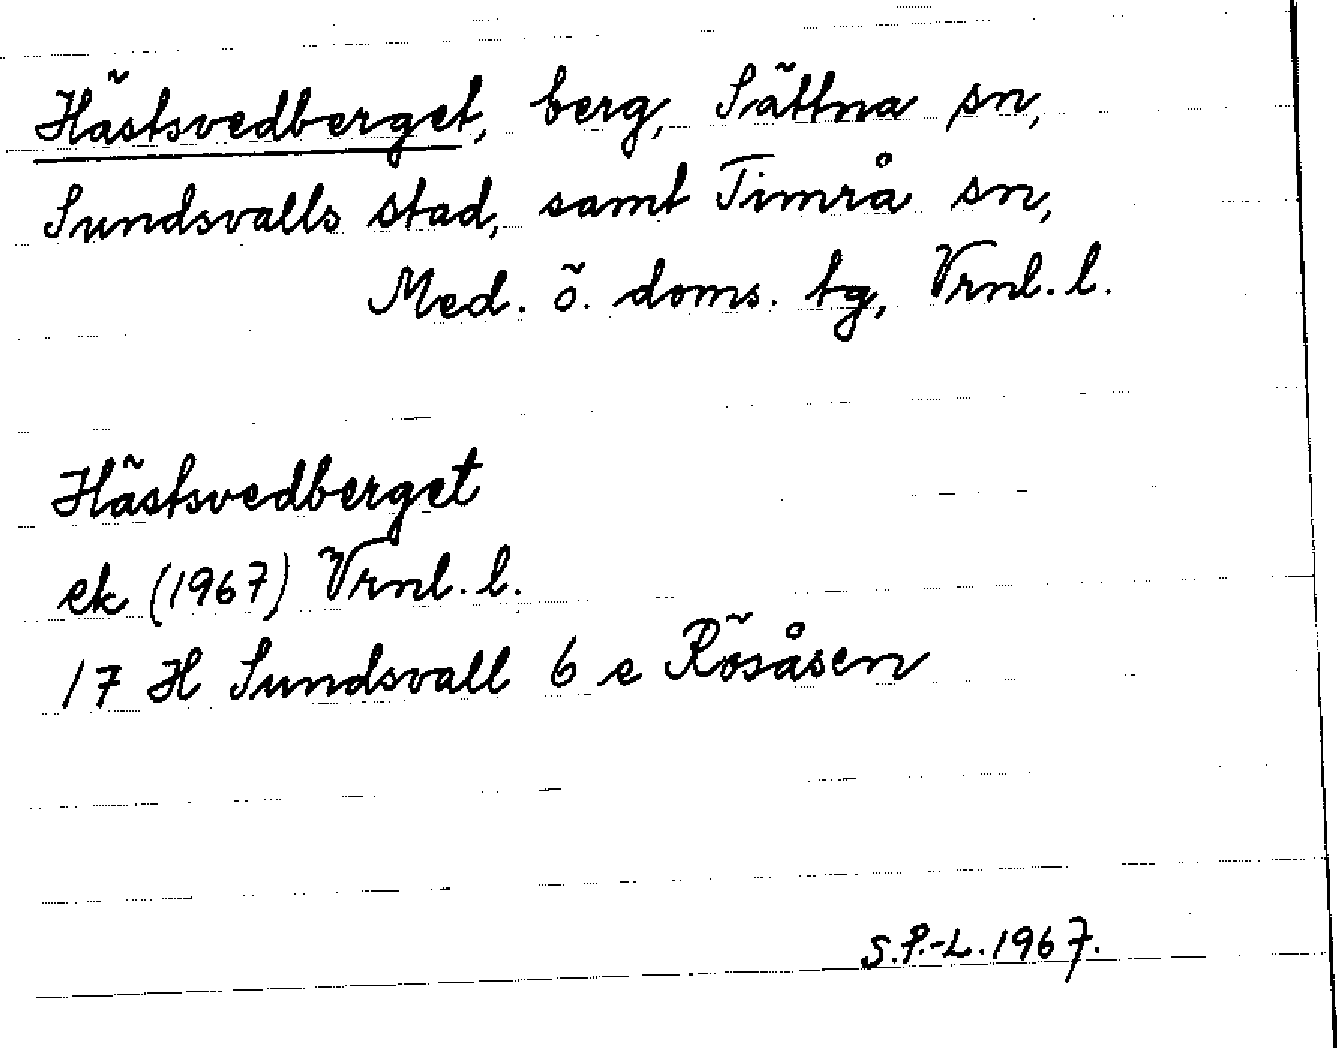 Hästsvedberget, berg, Sättna sn,
Sundsvalls stad, samt Timrå sn,
Med. ö. doms. tg, Vrnl. l.
Hästsvedberget
ek (1967) Vrnl. l.
17 H Sundsvall 6 e Rösåsen
S.P.-L. 1967.